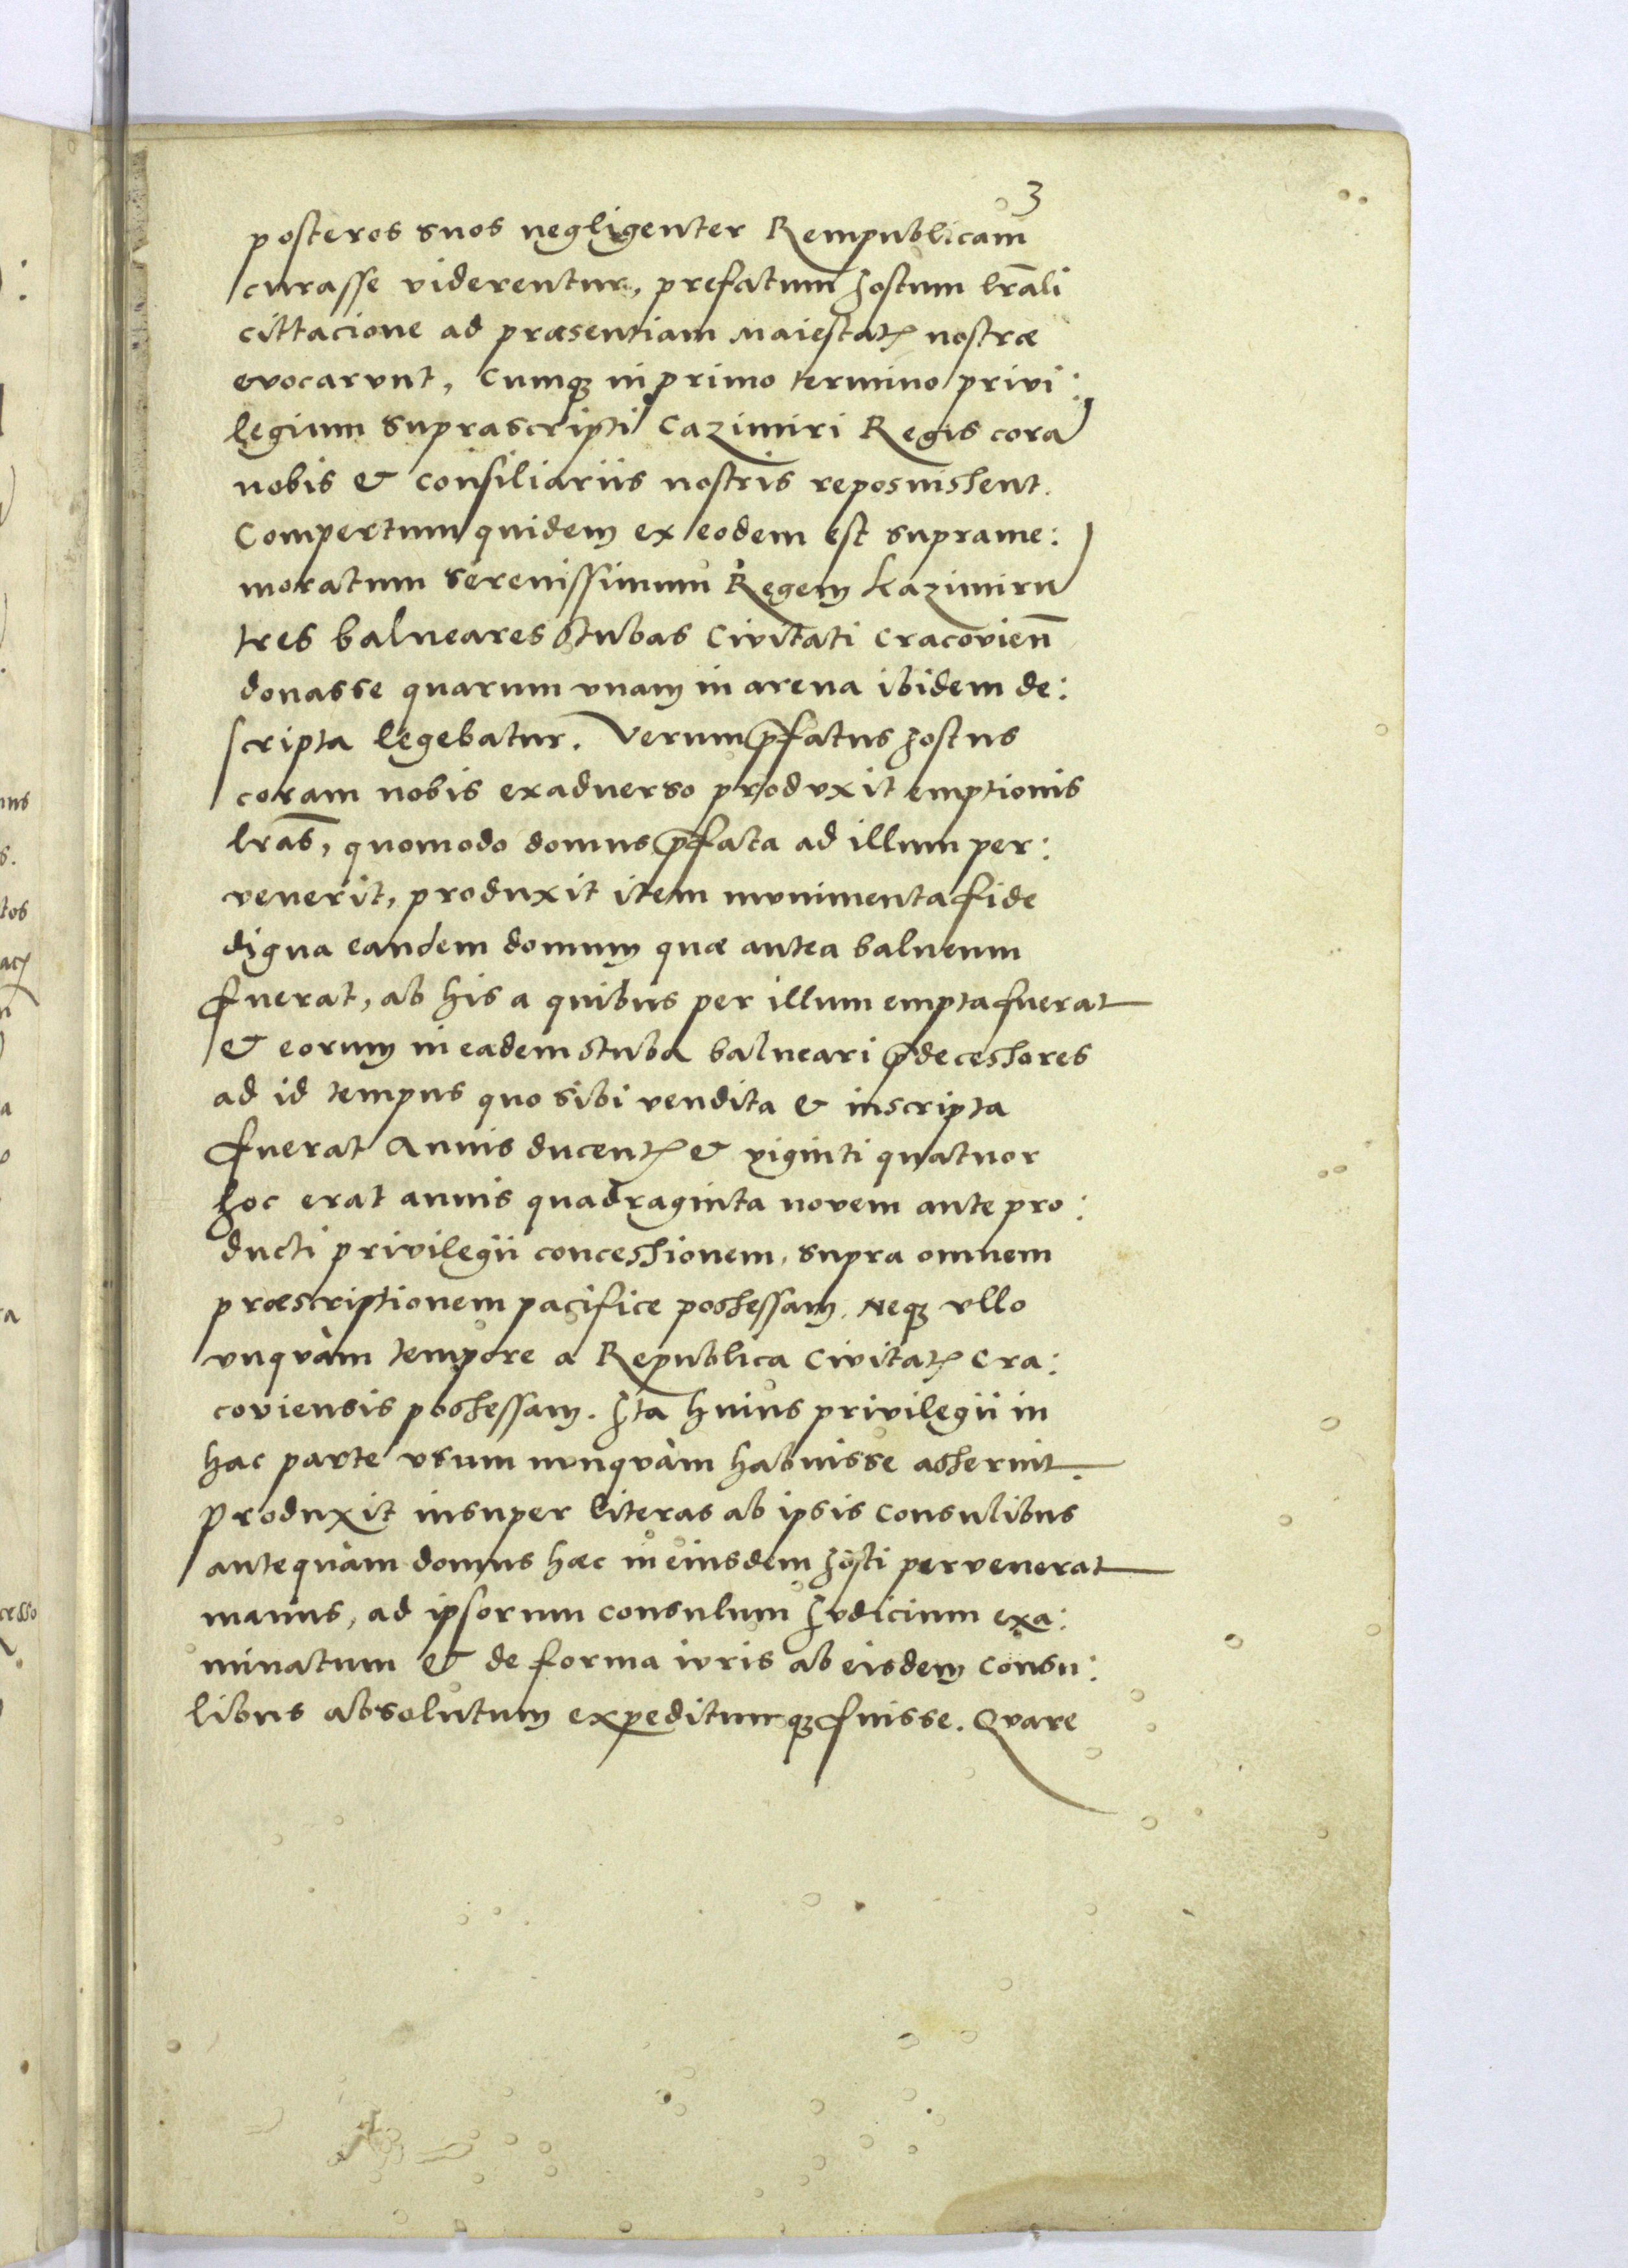 3
posteros suos negligenter Rempublicam
curasse viderentur, prefatum Jostum lr̃ali
cittacione ad præsentiam Maiestatꝭ nostræ
evocarunt, Cumqꝫ in primo termino privi:
legium suprascripti Cazimiri Regis corã
nobis & Consiliariis nostris reposuissent.
Compertum quidem ex eodem est suprame:
moratum Serenissimum Regem Kazimirũ
tres balneares Stubas Civitati Cracovień
donasse quarum unam in arena ibidem de:
scripta legebatur. Verum p̃fatus Jostus
coram nobis exadverso produxit emptionis
lr̃as, quomodo domus p̃fata ad illum per:
venerit, produxit item munimenta fide
digna eandem domum quæ antea balneum
fuerat, ab his a quibus per illum empta fuerat
& eorum in eadem stuba balneari p̃decessores
ad id tempus quo sibi vendita & inscripta
fuerat Annis ducentꝭ & viginti quatuor
hoc erat annis quadraginta novem ante pro:
ducti privilegii concessionem, supra omnem
præscriptionem pacifice possessam, Neqꝫ ullo
unquàm tempore a Republica Civitatꝭ Cra:
coviensis possessam. Ita huius privilegii in
hac parte usum nunquàm habuisse asseruit.
Produxit insuper literas ab ipsis Consulibus
antequàm domus hæc in eiusdem Josti pervenerat
manus, ad ipsorum consulum Judicium exa:
minatum & de forma iuris ab eisdem Consu:
libus absolutum expeditumqꝫ fuisse. Quare